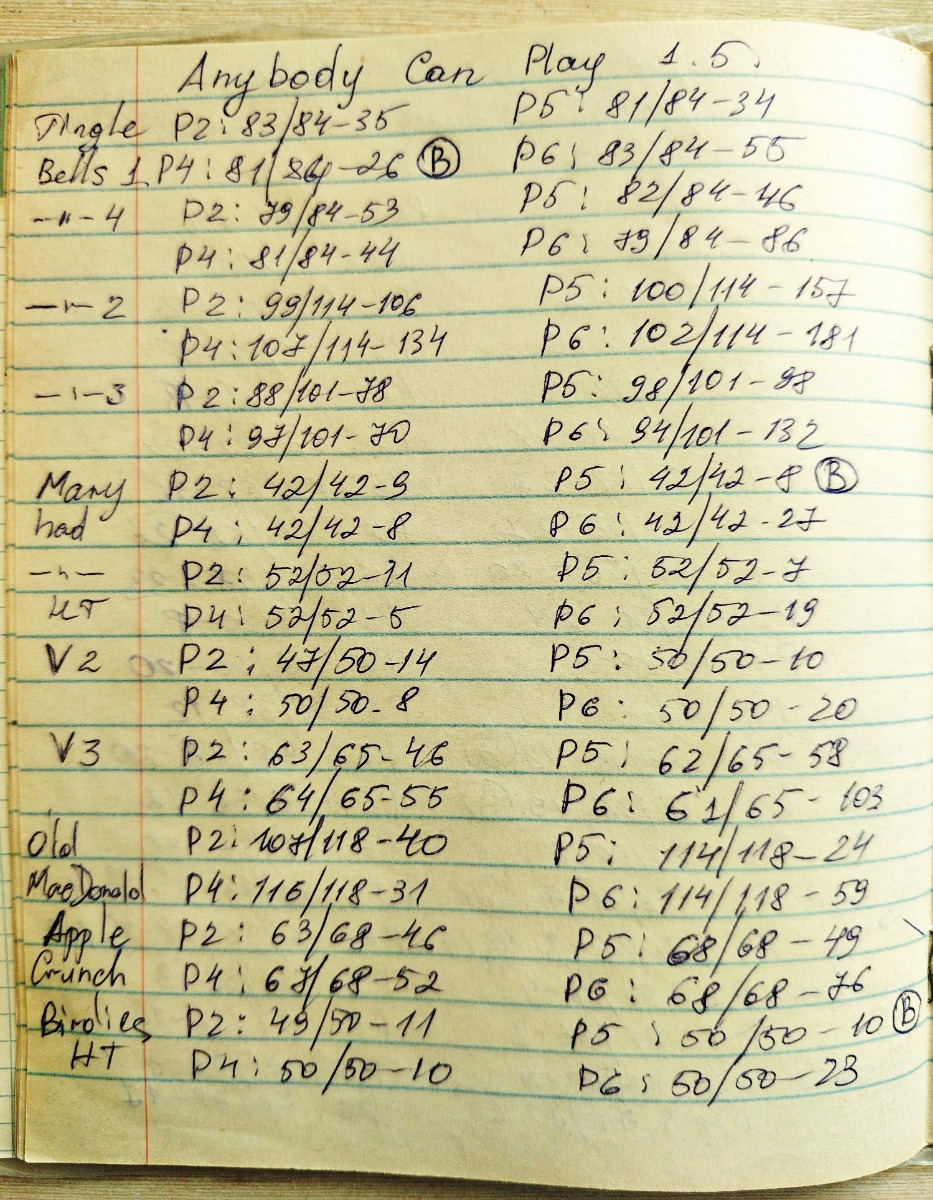 Anybody Can Play 1.5.
Jingle P2: 83/84-35 P5: 81/84-34
Bells 1 P4: 81/84-26 B P6: 83/84-55
-"- 4 P2: 79/84-53 P5: 82/84-46
P4: 81/84-44 P6: 79/84-86
-"- 2 P2: 99/114-106 P5: 100/114-157
P4: 107/114-134 P6: 102/114-181
-"- 3 P2: 88/101-78 P5: 98/101-98
P4: 97/101-70 P6: 94/101-132
Mary P2: 42/42-9 P5: 42/42-8 B
had P4: 42/42-8 P6: 42/42-27
-"- P2: 52/52-11 P5: 52/52-7
HT P4: 52/52-5 P6: 52/52-19
V2 P2: 47/50-14 P5: 50/50-10
P4: 50/50-8 P6: 50/50-20
V3 P2: 63/65-46 P5: 62/65-58
P4: 64/65-55 P6: 61/65-103
Old P2: 107/118-40 P5: 114/118-24
MacDonald P4: 116/118-31 P6: 114/118-59
Apple P2: 63/68-46 P5: 68/68-49
Crunch P4: 67/68-52 P6: 68/68-76
Birdies, P2: 49/50-11 P5: 50/50-10 B
HT P4: 50/50-10 P6: 50/50-23